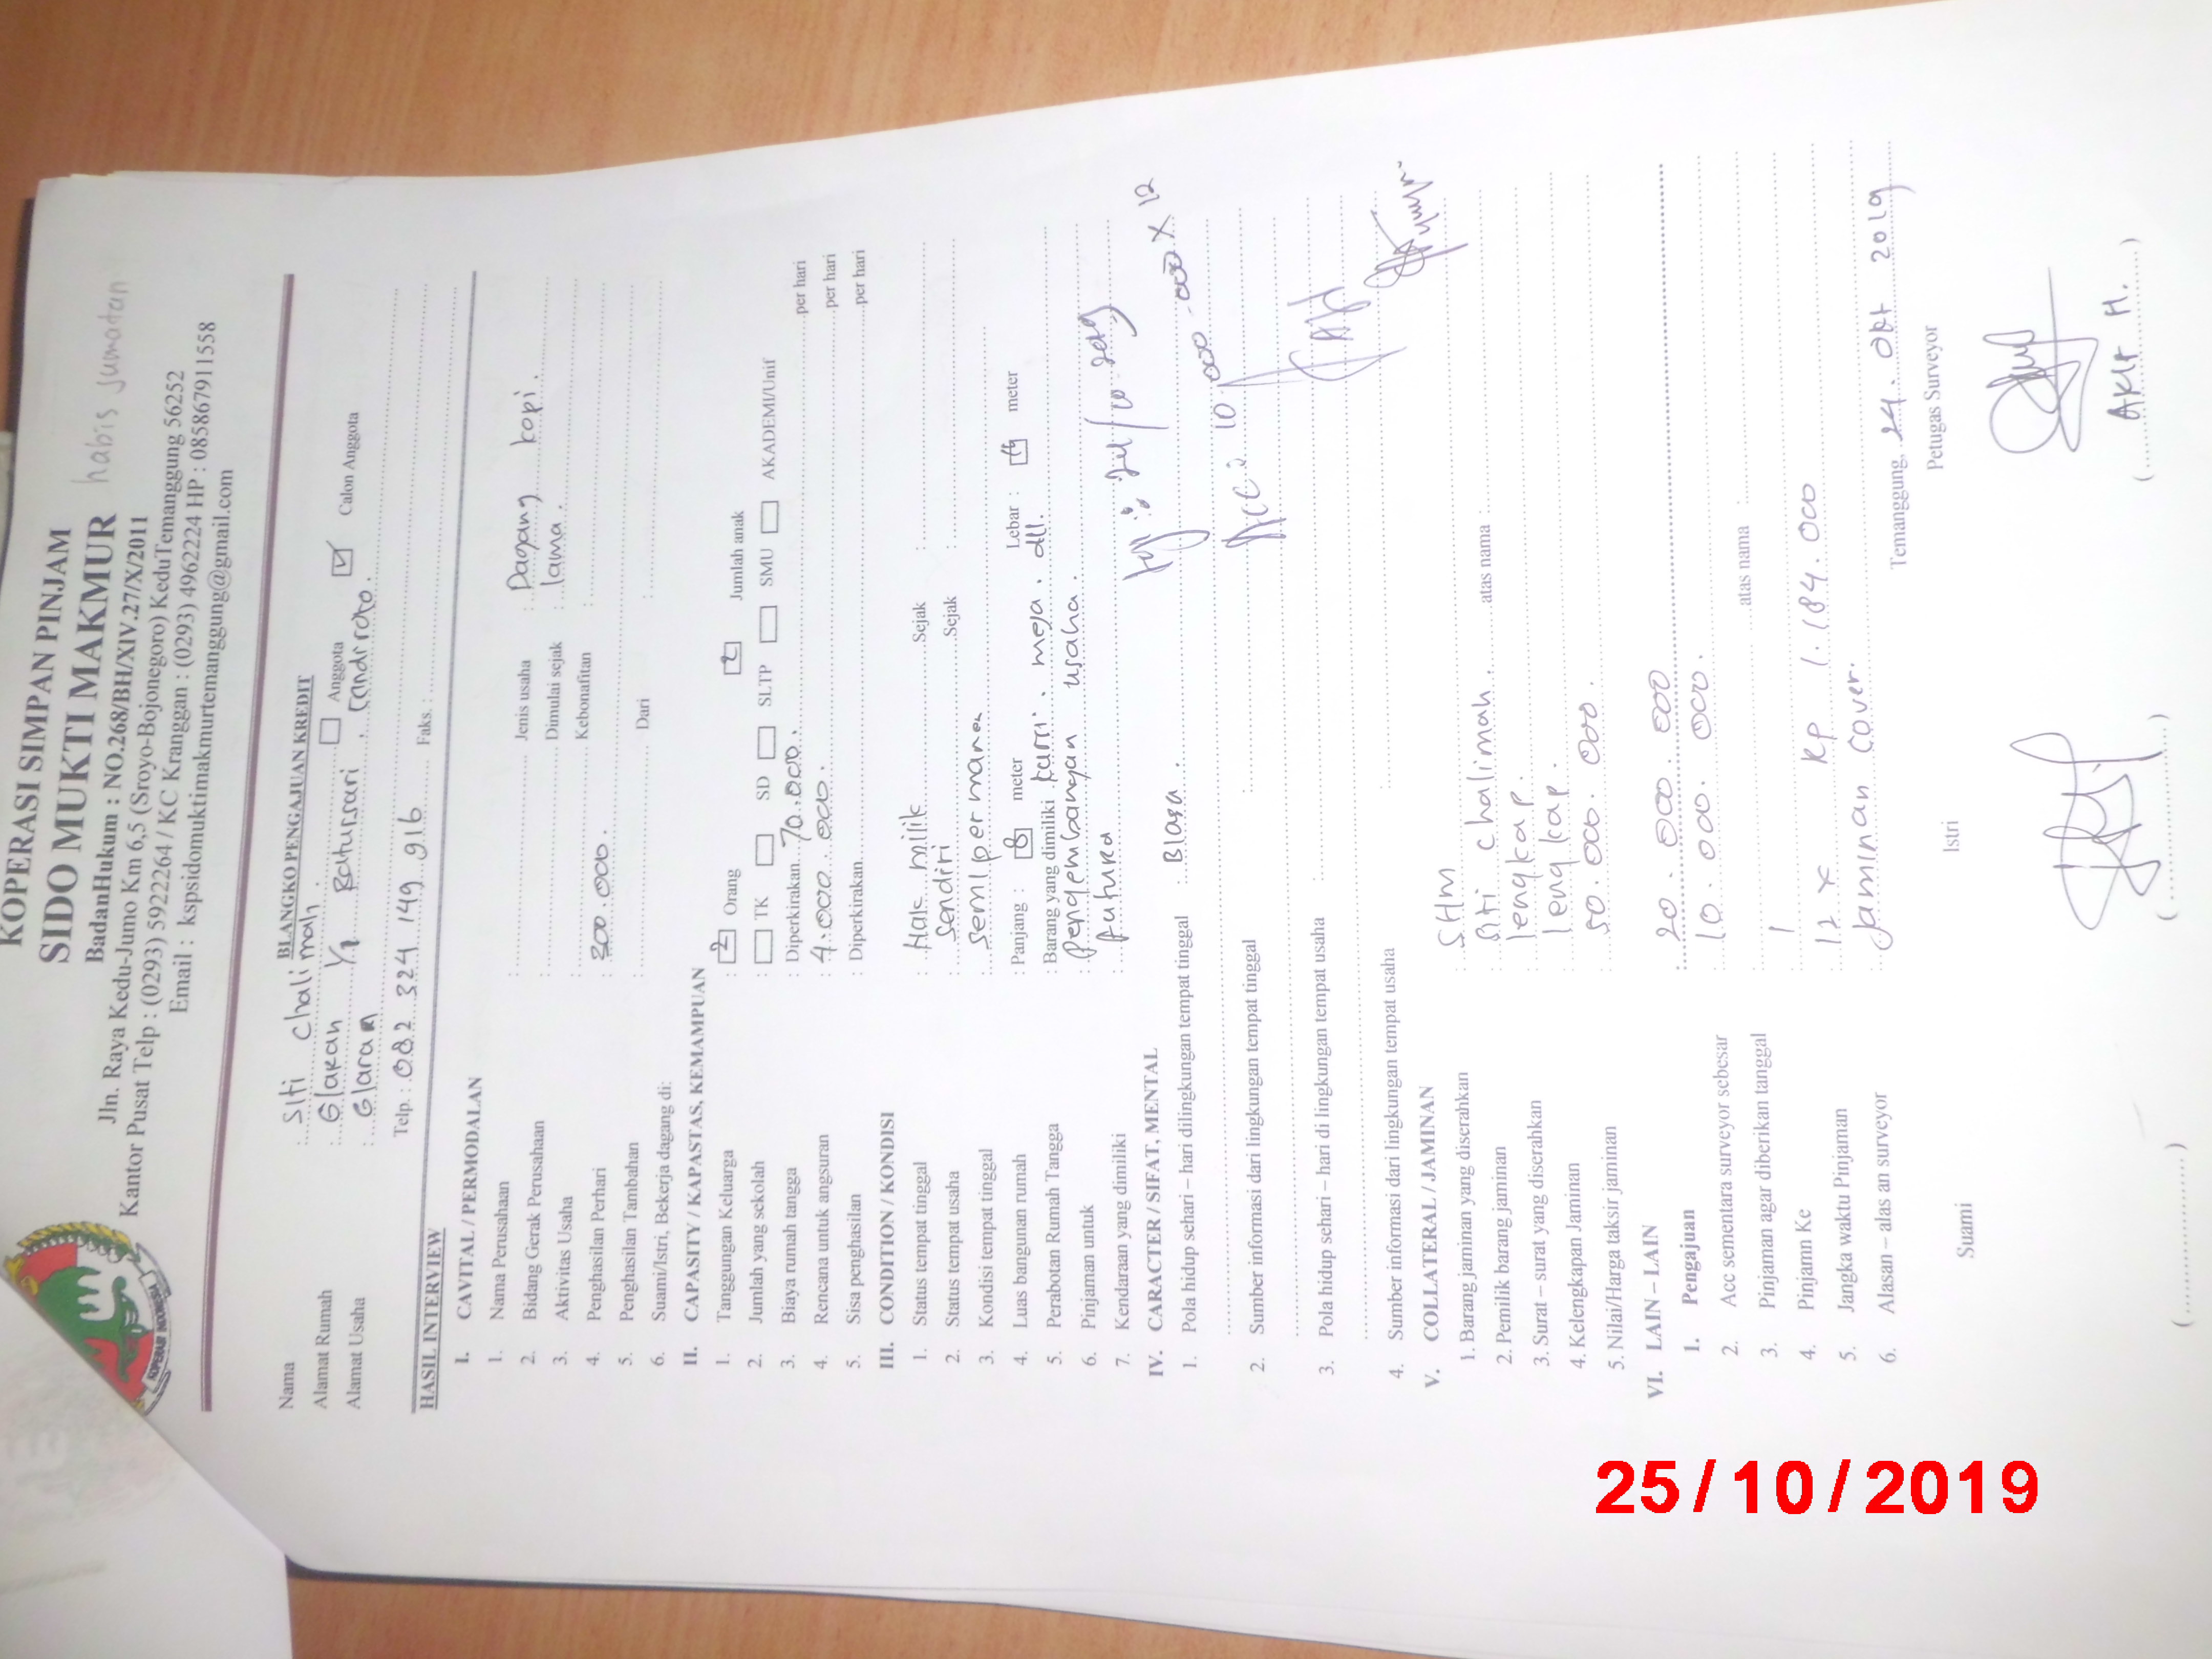 KOPERASI SIMPAN PINJAM
SIDO MUKTI MAKMUR
habis jumatan
BadanHukum : NO.268/BH/XIV.27/X/2011
Jln. Raya Kedu-Jumo Km 6,5 (Sroyo-Bojonegoro) KeduTemanggung 56252
Kantor Pusat Telp : (0293) 5922264 / KC Kranggan : (0293) 4962224 HP : 085867911558
Email : kspsidomuktimakmurtemanggung@gmail.com
KOPERASI INDONESIA
BLANGKO PENGAJUAN KREDIT
Nama : Siti chalimah. Anggota Calon Anggota
Alamat Rumah : Glapan 1/2 Batursari, Candiroto.
Alamat Usaha :
Telp. : 082 324 149 916 Faks. :
HASIL INTERVIEW
I. CAVITAL / PERMODALAN
1. Nama Perusahaan : Jenis usaha : Dagang kopi.
2. Bidang Gerak Perusahaan : Dimulai sejak : lama.
3. Aktivitas Usaha : Kebonafitan :
4. Penghasilan Perhari : 300.000.
5. Penghasilan Tambahan : Dari :
6. Suami/Istri, Bekerja dagang di:
II. CAPASITY / KAPASTAS, KEMAMPUAN
1. Tanggungan Keluarga : 2 Orang Jumlah anak
2. Jumlah yang sekolah : TK SD SLTP SMU AKADEMI/Unif
3. Biaya rumah tangga : Diperkirakan 70.000. per hari
4. Rencana untuk angsuran : 4.000.000. per hari
5. Sisa penghasilan Diperkirakan per hari
III. CONDITION / KONDISI
1. Status tempat tinggal : Hak milik Sejak :
2. Status tempat usaha : sendiri Sejak :
3. Kondisi tempat tinggal : semi permanen
4. Luas bangunan rumah : Panjang : 8 meter Lebar : meter
5. Perabotan Rumah Tangga : Barang yang dimiliki kursi, meja, dll.
6. Pinjaman untuk : Pengembangan usaha.
7. Kendaraan yang dimiliki : futura
IV. CARACTER / SIFAT, MENTAL
1. Pola hidup sehari – hari dilingkungan tempat tinggal : Biasa.
2. Sumber informasi dari lingkungan tempat tinggal :
3. Pola hidup sehari – hari di lingkungan tempat usaha :
4. Sumber informasi dari lingkungan tempat usaha :
Acc : 10.000.000 x 12
V. COLLATERAL / JAMINAN
1. Barang jaminan yang diserahkan : SHM
2. Pemilik barang jaminan : Siti chalimah. atas nama :
3. Surat – surat yang diserahkan : lengkap.
4. Kelengkapan Jaminan : lengkap.
5. Nilai/Harga taksir jaminan : 50.000.000.
VI. LAIN – LAIN
1. Pengajuan : 20.000.000
2. Acc sementara surveyor sebesar : 10.000.000.
3. Pinjaman agar diberikan tanggal : atas nama :
4. Pinjamn Ke : 1
5. Jangka waktu Pinjaman : 12 x Rp 1.184.000
6. Alasan – alas an surveyor : Jaminan cover.
Temanggung, 24. Okt 2019
Suami Istri Petugas Surveyor
(..............) (..............) (..............)
25/10/2019